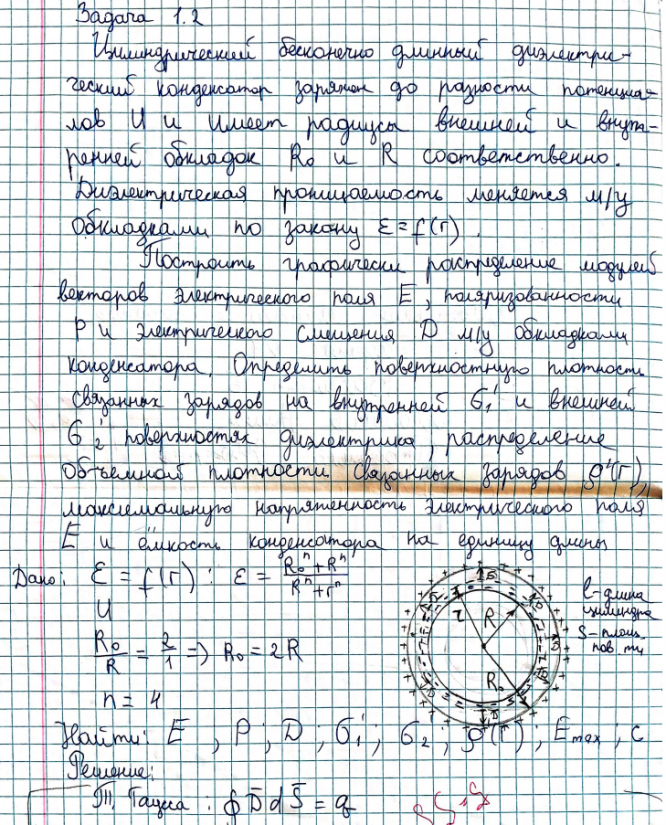 Задача 1.2
Цилиндрический бесконечно длинный диэлектри-
ческий конденсатор заряжен до разности потенциа-
лов U и имеет радиусы внешней и внут-
ренней обкладок R₀ и R соответственно.
Диэлектрическая проницаемость меняется м/у
обкладками по закону ε=f(r).
Построить графически распределение модулей
векторов электрического поля E, поляризованности
P и электрического смещения D м/у обкладками
конденсатора. Определить поверхностную плотность
связанных зарядов на внутренней σ₁' и внешней
σ₂' поверхностях диэлектрика, распределение
объемной плотности связанных зарядов ρ'(r),
максимальную напряженность электрического поля
E и ёмкость конденсатора на единицу длины
Дано: ε = f(r); ε = (R₀ⁿ + Rⁿ)/(Rⁿ + rⁿ)
U
R₀/R = 2/1 => R₀ = 2R
n = 4
R
r
R₀
l - длина
цилиндра
S - площ.
пов-ти
Найти: E, P; D; σ₁'; σ₂'; ρ'(r); Emax; c
Решение:
Т. Гаусса: ∮D̄dS̄ = q